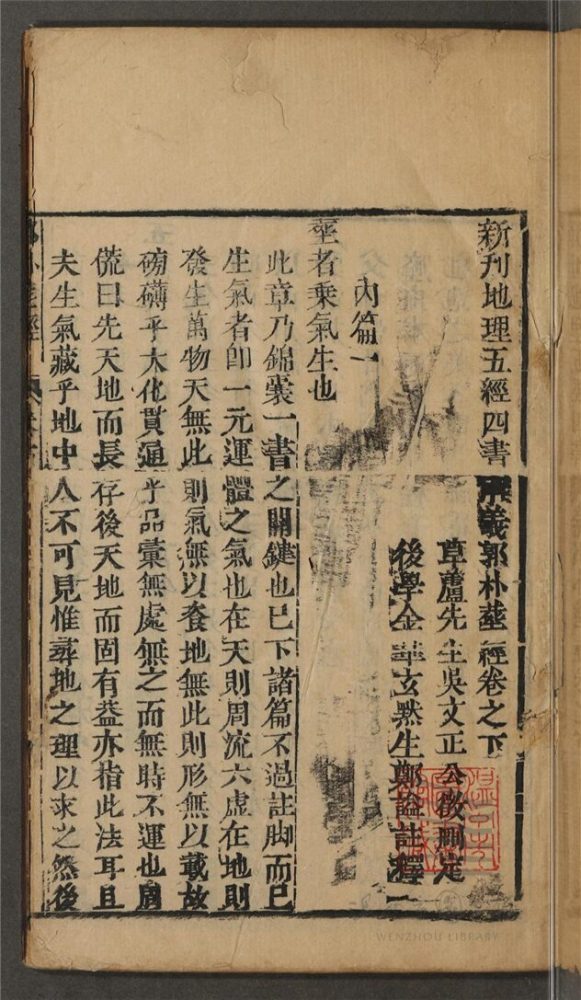 新刊地理五經四書解義郭朴葬經卷之下
草蘆先生吳文正公澂刪定
後學金華玄黙生鄭謐註釋
內篇一
葬者乘氣生也
此章乃錦囊一書之關鍵也已下諸篇不過註脚而已
生氣者卽一元運體之氣也在天則周流六虛在地則
發生萬物天無此則氣無以資地無此則形無以載故
磅礴乎大化貫通乎品彚無處無之而無時不運也陶
侃曰先天地而長存後天地而固有葢亦指此法耳且
夫生氣藏乎地中人不可見惟葬地之理以求之然後
WENZHOU LIBRARY